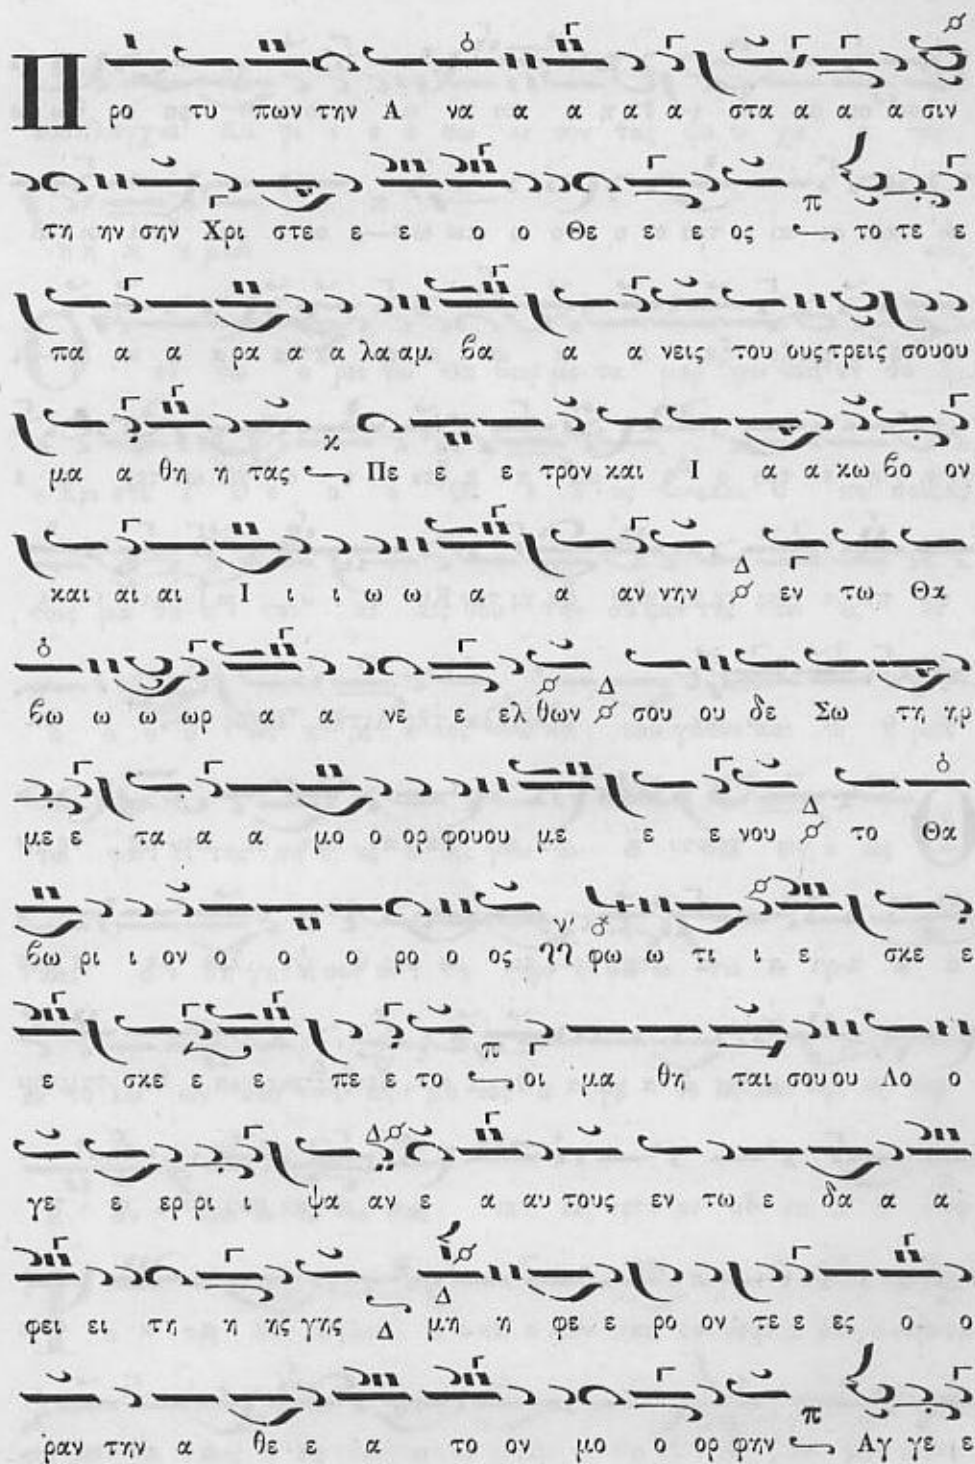 Προ τυ πων την Α να α α α α στα α α α σιν
τη ην σην Χρι στε ε ε ο ο Θε ε ε ος π το τε ε
πα α α ρα α α λα αμ βα α α νεις του ους τρεις σου ου
μα α θη η τας κ Πε ε ε τρον και Ι α α κω βο ον
και αι αι Ι ι ι ω ω α α αν νην Δ εν τω Θα
βω ω ω ωρ α α νε ε ελ θων Δ σου ου δε Σω τη ηρ
με ε τα α α μο ο ορ φου ου με ε ε νου Δ το Θα
βω ρι ι ον ο ο ο ρο ο ος ν' φω ω τι ι ε σκε ε
ε σκε ε ε πε ε το π οι μα θη ται σου ου Λο ο
γε ε ερ ρι ι ψα αν ε α αυ τους εν τω ε δα α α
φει ει τη η ης γης Δ μη η φε ε ρο ον τε ε ες ο ο
ραν την α θε ε α το ον μο ο ορ φην π Αγ γε ε